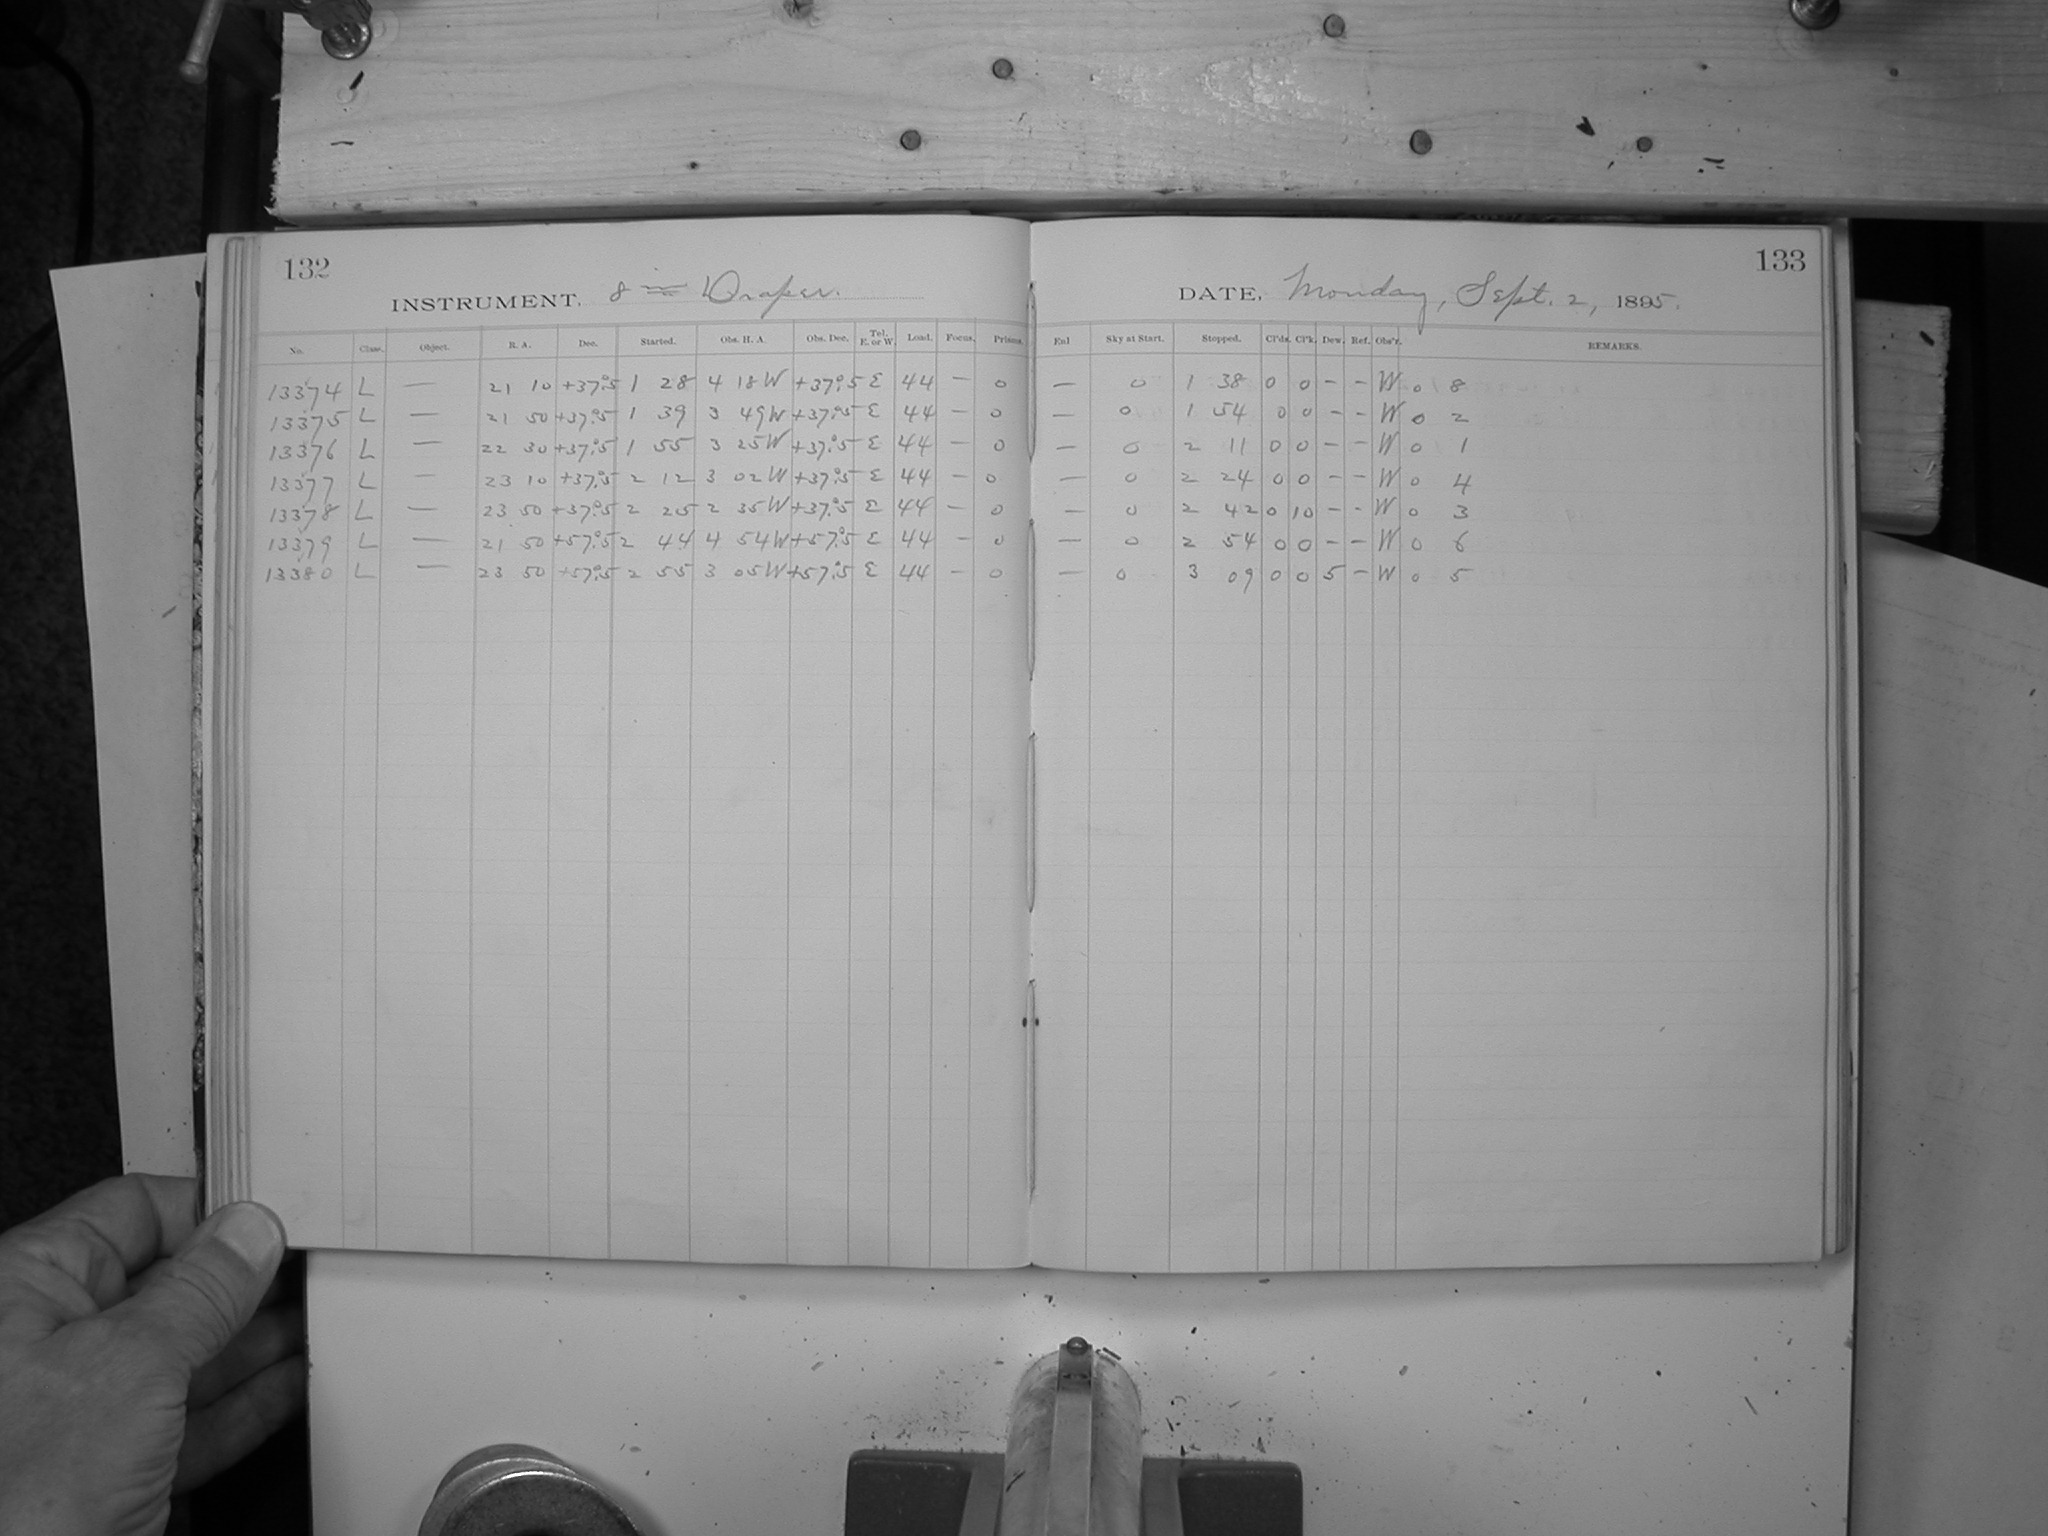 132
INSTRUMENT. 8 in Draper.
No. Class. Object. R. A. Dec. Started. Obs. H. A. Obs. Dec. Tel. E. or W. Load. Focus. Prisms.
13374 L — 21 10 +37°.5 1 28 4 18 W +37°.5 E 44 — 0
13375 L — 21 50 +37°.5 1 39 3 49 W +37°.5 E 44 — 0
13376 L — 22 30 +37°.5 1 55 3 25 W +37°.5 E 44 — 0
13377 L — 23 10 +37°.5 2 12 3 02 W +37°.5 E 44 — 0
13378 L — 23 50 +37°.5 2 25 2 35 W +37°.5 E 44 — 0
13379 L — 21 50 +57°.5 2 44 4 54 W +57°.5 E 44 — 0
13380 L — 23 50 +57°.5 2 55 3 05 W +57°.5 E 44 — 0
133
DATE, Monday, Sept. 2, 1895.
Enl Sky at Start. Stopped. Cl'ds. Cl'k. Dew. Ref. Obs'r. REMARKS.
— 0 1 38 0 0 – – W 0 8
— 0 1 54 0 0 – – W 0 2
— 0 2 11 0 0 – – W 0 1
— 0 2 24 0 0 – – W 0 4
— 0 2 42 0 10 – – W 0 3
— 0 2 54 0 0 – – W 0 6
— 0 3 09 0 0 5 – W 0 5